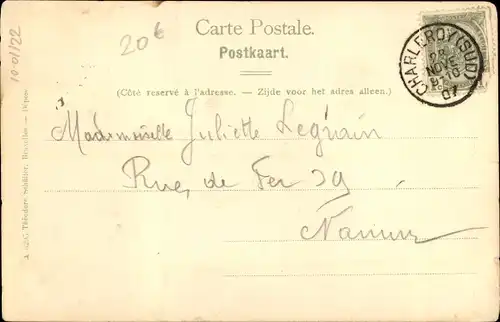 10-01/22
20 6
Carte Postale.
Postkaart.
(Côté reservé à l'adresse. — Zijde voor het adres alleen.)
CHARLEROY (SUD)
28
NOVE
8-10
07
Mademoiselle Juliette Legrain
Rue de Fer 39
Namur
Théodore Schäfer, Bruxelles.